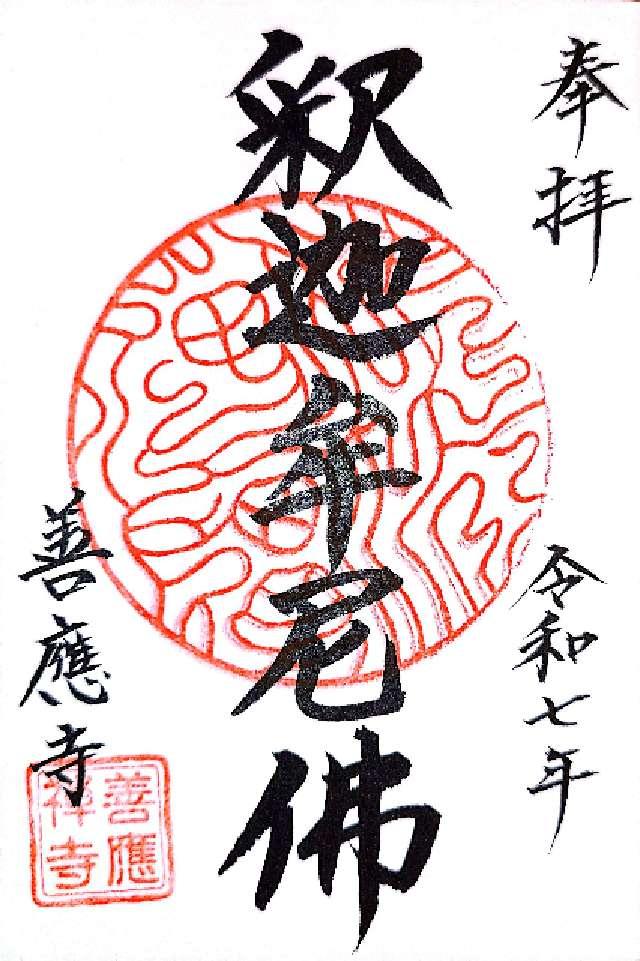 奉拝
令和七年
釈迦牟尼佛
善應寺
善應禅寺